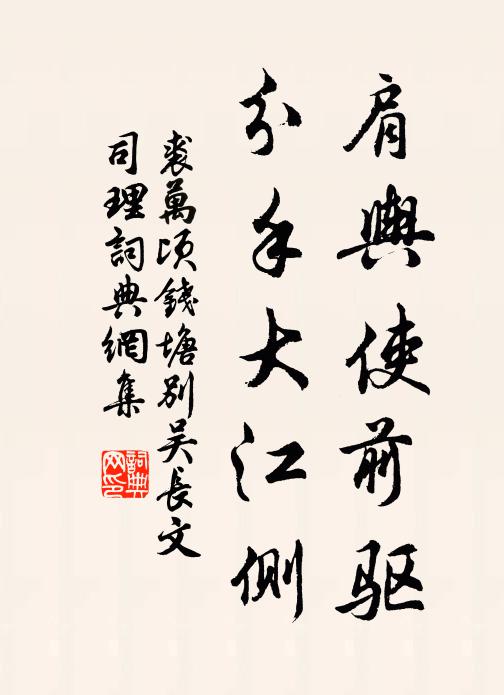 肩輿使前驱
分手大江側
裘萬頃錢塘别吴長文
司理詞典網集
詞典网印